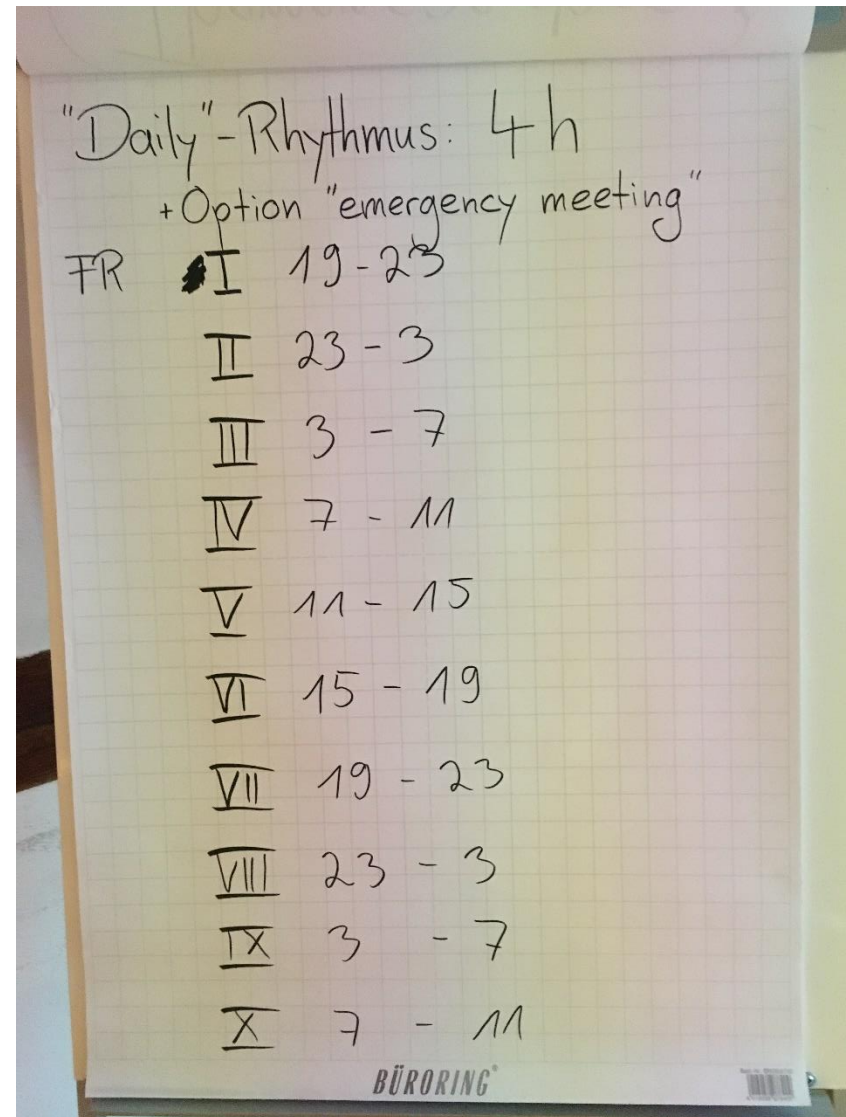 "Daily"-Rhythmus: 4h
+ Option "emergency meeting"
FR I 19-23
II 23 - 3
III 3 - 7
IV 7 - 11
V 11 - 15
VI 15 - 19
VII 19 - 23
VIII 23 - 3
IX 3 - 7
X 7 - 11
BÜRORING®